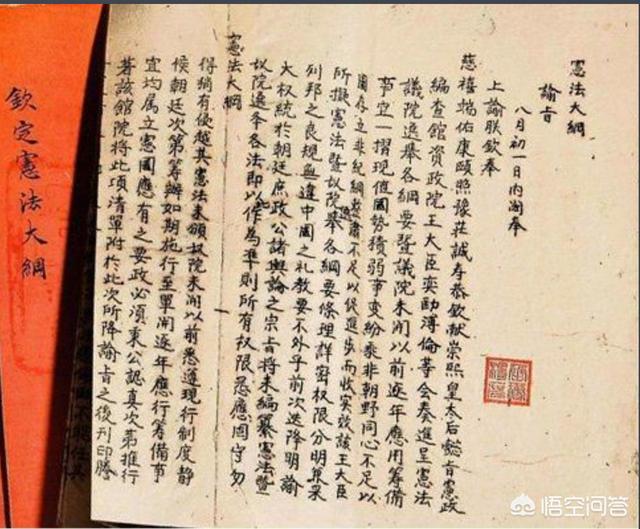 憲法大綱
諭旨
八月初一日內閣奉
上諭朕欽奉
慈禧端佑康頤照豫莊誠壽恭欽獻崇熙皇太后懿旨憲政
編查館資政院王大臣奕劻溥倫等會奏進呈憲法
議院選舉各綱要暨議院未開以前逐年應用籌備
事宜一摺現值國勢積弱事變紛乘非朝野同心不足以
圖存立非紀綱整肅不足以促進步而收實效該王大臣
所擬憲法暨議院選舉各綱要條理詳密權限分明兼采
列邦之良規無違中國之禮教要不外乎前次迭降明諭
大權統於朝廷庶政公諸輿論之宗旨將來編纂憲法暨
議院選舉各法即以作為準則所有權限悉應固守勿
憲法大綱
得稍有侵越其憲法未頒議院未開以前悉遵現行制度靜
候朝廷次第籌辦如期施行至單開逐年應行籌備事
宜均屬立憲國應有之要政必須秉公認真次第推行
著該館院將此項清單附於此次所降諭旨之後刊印謄
欽定憲法大綱
悟空问答